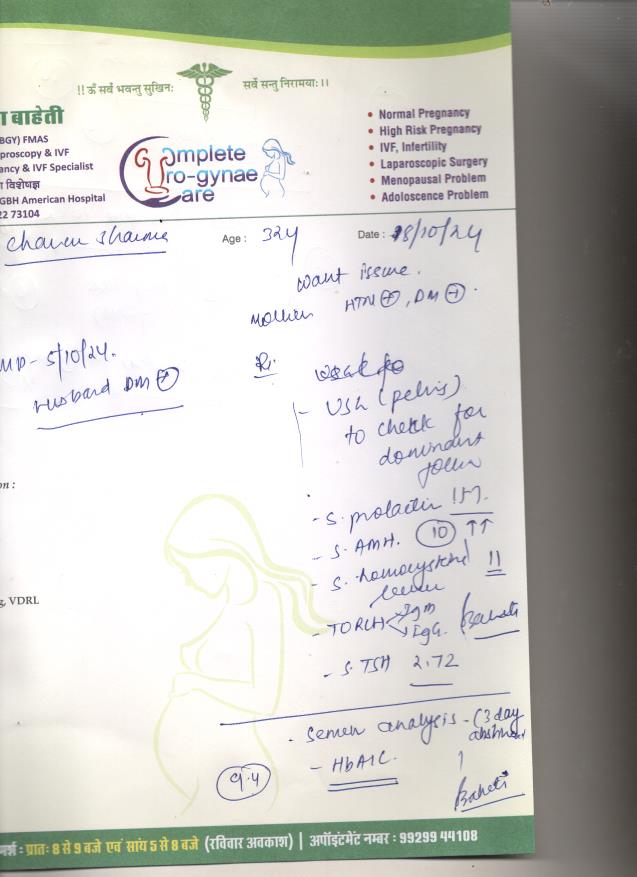 !! ॐ सर्वे भवन्तु सुखिनः सर्वे सन्तु निरामयाः ।।
ा बाहेती
BGY) FMAS
proscopy & IVF
ancy & IVF Specialist
ा विशेषज्ञ
GBH American Hospital
22 73104
Complete
Uro-gynae
Care
• Normal Pregnancy
• High Risk Pregnancy
• IVF, Infertility
• Laparoscopic Surgery
• Menopausal Problem
• Adoloscence Problem
Sharma Age : 32y Date : 18/10/24
want issue.
Mother HTN +, DM +.
MP - 5/10/24.
Husband DM +
Rx.
- USG (pelvis)
to check for
dominant
on :
- S. prolactin 17.
- S. AMH. 10 ↑↑
- S. homocysteine 11
g, VDRL
- TORCH IgM
IgG.
- S. TSH 2.72
- Semen analysis - (3 day
- HbA1C.
9.4
मर्श : प्रातः 8 से 9 बजे एवं सांय 5 से 8 बजे (रविवार अवकाश) | अपॉइंटमेंट नम्बर : 99299 44108